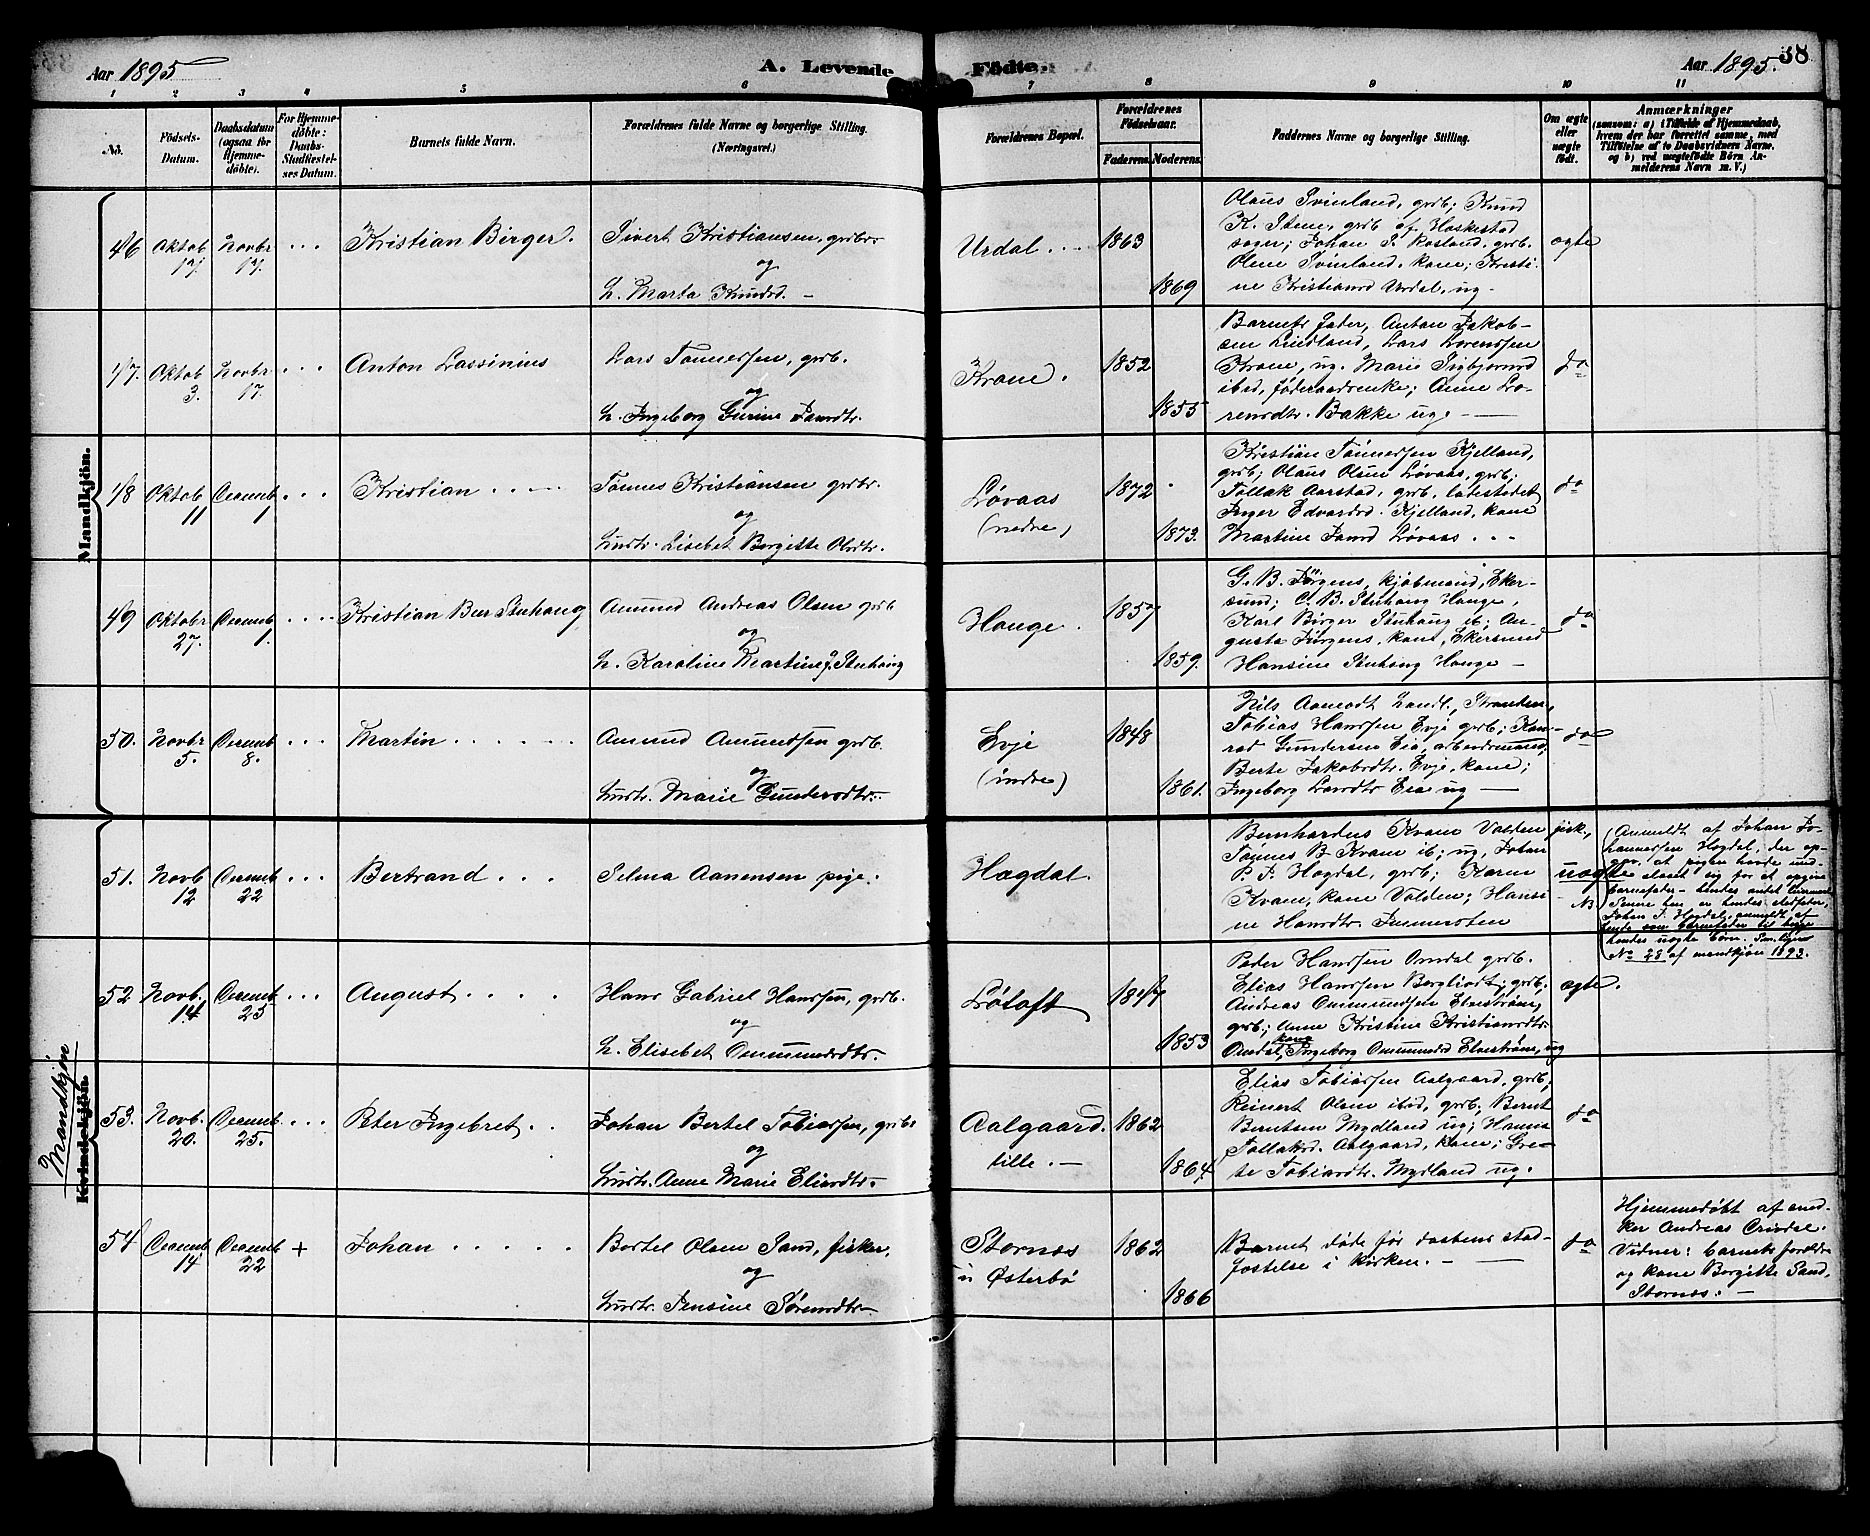 Aar 1895
A. Levende Födte.
Aar 1895.
38
1 2 3 4 5 6 7 8 9 10 11
No.
Födsels-
Datum.
Daabsdatum
(ogsaa for
Hjemme-
döbte).
For Hjemme-
döbte:
Daabs-
Stadfæstel-
ses Datum.
Barnets fulde Navn.
Forældrenes fulde Navne og borgerlige Stilling.
(Næringsvei.)
Forældrenes Bopæl.
Forældrenes
Födselsaar.
Faderens. Moderens.
Faddernes Navne og borgerlige Stilling.
Om ægte
eller
uægte
födt.
Anmærkninger
(saasom: a) i Tilfælde af Hjemmedaab,
hvem der har forrettet samme, med
Tilföielse af to Daabsvidners Navne,
og b) ved uægtefödte Börn An-
melderens Navn m. V.)
Mandkjön.
46
Oktob
17.
Novbr
17.
Kristian Birger.
Sivert Kristiansen, grdbr.
og
h. Marta Knudsd. -
Urdal
1863
1869
Olaus Svinland, grdb; Knud
K. Stene, grdb af Heskestad
sogn; Johan S. Rosland, grdb.
Oline Svinland, kone; Kristi-
ne Kristiansd Urdal, ug -
ægte
47.
Oktob
3.
Novbr
17.
Anton Lassinius
Lars Tønnessen, grdb.
og
h. Ingeborg Gurine Jansdtr.
Kvane.
1852
1855
Barnets fader, Anton Jakob-
sen Lindland, Lars Lorensen
Kvane, ug. Marie Sigbjørnsd
ibid, føderaadsenke; Anne Lo-
rensdtr. Bakke ug. -
do
48
Oktob
11
Decemb
1
Kristian
Tønnes Kristiansen grdbr.
og
hustr. Lisebet Bergitte Olsdtr.
Løvaas
(nedre)
1872
1873.
Kristian Tønnesen Kjelland,
grdb; Olaus Olsen Løvaas, grdb;
Tollak Aarstad, grdb, ladestedet
Inger Edvardsd. Kjelland, kone
Martine Jansd Løvaas
do
49
Oktobr
27.
Decemb
1.
Kristian Beer Stuhaug
Amund Andreas Olsen grdb
og
h. Karoline Martine J. Stuhaug
Hauge.
1857
1859.
G. B. Jørgens, kjøbmand, Eker-
sund; C. B. Stuhaug Hauge,
Karl Birger Stuhaug ib; Au-
gusta Jørgens, kone, Ekersund
Hansine Stuhaug Hauge -
do
50.
Novbr
5.
Decemb
8.
Martin
Amund Amundsen grdb.
og
hustr. Marie Gundersdtr.
Evje
(indre)
1848
1861.
Nils Aamodt Landl., Stranden,
Tobias Hansen Evje grdb; Kon-
rad Gundersen Eie, arbeidsmand,
Berte Jakobsdtr. Evje, kone;
Ingeborg Larsdtr Eie ug -
do
51.
Novb
12
Decemb
22
Bertrand
Selma Aanensen pige.
Høgdal.
Bernhardus Kvam Valden fisk.,
Tønnes B Kvam ib; ug, Johan
P. J. Høgdal, grdb; Karen
Kvam, kone Valden; Hansi-
ne Hansdtr.
uægte
NB
Anmeldt af Johan Jo-
hannesen Høgdal, der op-
gav, at pigen havde und-
slaaet sig for at opgive
barnefader -
Johan J. Høgdal, anmeldt af
hendes uægte børn.
No 28 af mandkjøn 1893.
Mandkjøn
Kvindekjön.
52
Novb.
14
Decemb
25
August
Hans Gabriel Hansen, grdb.
og
h. Elisebet Ommundsdtr.
Løtoft
1847
1853
Peder Hansen Omdal grdb.
Elias Hansen Bergliot; grdb.
Andreas Ommundsen Elvestrøm,
grdb; Anne Kristine Kristiansdtr.
Omdal, kone Ingeborg Ommundsd Elvestrøm, ug
ægte.
53.
Novb.
20.
Decemb
25.
Peter Ingebret
Johan Bertel Tobiassen, grdbr
og
hustr. Anne Marie Eliasdtr.
Aalgaard.
lille. -
1862
1864.
Elias Tobiassen Aalgaard, grdb,
Reinert Olsen ibid, grdb; Bernt
Berntsen Mydland ug; Hanna
Tollaksd. Aalgaard, kone; Gre-
te Tobiasdtr. Mydland ug.
do
54
Decemb
14
Decemb
22
+
Johan
Bertel Olsen Sand, fisker.
og
hustr. Jensine Sørensdtr
Stornæs
u Østerbø
1862
1866
Barnet døde før daabens stad-
fæstelse i kirken. -
do
Hjemmedøbt af
Andreas
Vidner: barnets forældre
og kone Bergitte Sand,
Stornæs. -